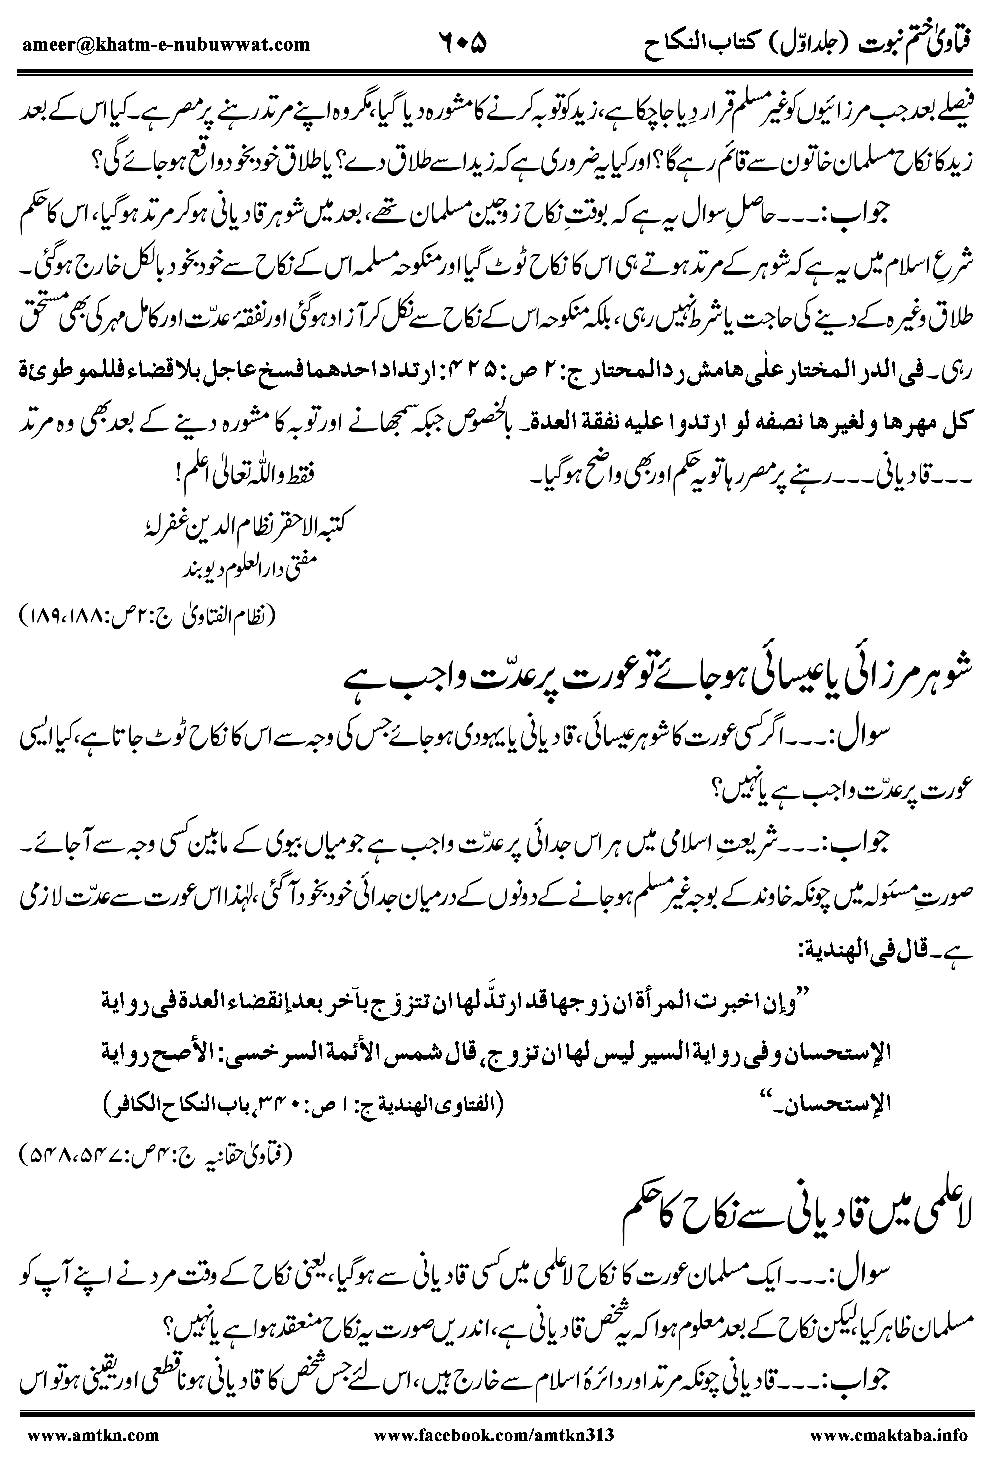 فتاویٰ ختم نبوت (جلد اوّل) کتاب النکاح ۶۰۵ ameer@khatm-e-nubuwwat.com
فیصلے بعد جب مرزائیوں کو غیر مسلم قرار دیا جاچکا ہے، زید کو توبہ کرنے کا مشورہ دیا گیا، مگر وہ اپنے مرتد رہنے پر مصر ہے۔ کیا اس کے بعد
زید کا نکاح مسلمان خاتون سے قائم رہے گا؟ اور کیا یہ ضروری ہے کہ زید اسے طلاق دے؟ یا طلاق خود بخود واقع ہوجائے گی؟
جواب:۔۔۔ حاصلِ سوال یہ ہے کہ بوقتِ نکاح زوجین مسلمان تھے، بعد میں شوہر قادیانی ہوکر مرتد ہوگیا، اس کا حکم
شرعِ اسلام میں یہ ہے کہ شوہر کے مرتد ہوتے ہی اس کا نکاح ٹوٹ گیا اور منکوحہ مسلمہ اس کے نکاح سے خود بخود بالکل خارج ہوگئی۔
طلاق وغیرہ کے دینے کی حاجت یا شرط نہیں رہی، بلکہ منکوحہ اس کے نکاح سے نکل کر آزاد ہوگئی اور نفقۂ عدّت اور کامل مہر کی بھی مستحق
رہی۔ فی الدر المختار علٰی ھامش رد المحتار ج:۲ ص:۴۲۵: ارتداد احدھما فسخ عاجل بلا قضاء فللموطوئۃ
کل مھرھا ولغیرھا نصفہ لو ارتدوا علیہ نفقۃ العدۃ۔ بالخصوص جبکہ سمجھانے اور توبہ کا مشورہ دینے کے بعد بھی وہ مرتد
۔۔۔قادیانی۔۔۔ رہنے پر مصر رہا تو یہ حکم اور بھی واضح ہوگیا۔ فقط واللہ تعالیٰ اعلم!
کتبہ الاحقر نظام الدین غفرلہٗ
مفتی دارالعلوم دیوبند
(نظام الفتاویٰ ج:۲ ص:۱۸۸،۱۸۹)
شوہر مرزائی یا عیسائی ہوجائے تو عورت پر عدّت واجب ہے
سوال:۔۔۔ اگر کسی عورت کا شوہر عیسائی، قادیانی یا یہودی ہوجائے جس کی وجہ سے اس کا نکاح ٹوٹ جاتا ہے، کیا ایسی
عورت پر عدّت واجب ہے یا نہیں؟
جواب:۔۔۔ شریعتِ اسلامی میں ہر اس جدائی پر عدّت واجب ہے جو میاں بیوی کے مابین کسی وجہ سے آجائے۔
صورتِ مسئولہ میں چونکہ خاوند کے بوجہ غیر مسلم ہوجانے کے دونوں کے درمیان جدائی خود بخود آگئی، لہٰذا اس عورت سے عدّت لازمی
ہے۔ قال فی الھندیۃ:
”وإن اخبرت المرأۃ ان زوجھا قد ارتدَّ لھا ان تتزوّج بآخر بعد إنقضاء العدۃ فی روایۃ
الإستحسان وفی روایۃ السیر لیس لھا ان تزوج، قال شمس الأئمۃ السرخسی: الأصح روایۃ
الإستحسان۔“ (الفتاوی الھندیۃ ج:۱ ص:۳۴۰، باب النکاح الکافر)
(فتاویٰ حقانیہ ج:۴ ص:۵۴۷،۵۴۸)
لاعلمی میں قادیانی سے نکاح کا حکم
سوال:۔۔۔ ایک مسلمان عورت کا نکاح لاعلمی میں کسی قادیانی سے ہوگیا، یعنی نکاح کے وقت مرد نے اپنے آپ کو
مسلمان ظاہر کیا، لیکن نکاح کے بعد معلوم ہوا کہ یہ شخص قادیانی ہے، اندریں صورت یہ نکاح منعقد ہوا ہے یا نہیں؟
جواب:۔۔۔ قادیانی چونکہ مرتد اور دائرۂ اسلام سے خارج ہیں، اس لئے جس شخص کا قادیانی ہونا قطعی اور یقینی ہو تو اس
www.amtkn.com www.facebook.com/amtkn313 www.cmaktaba.info